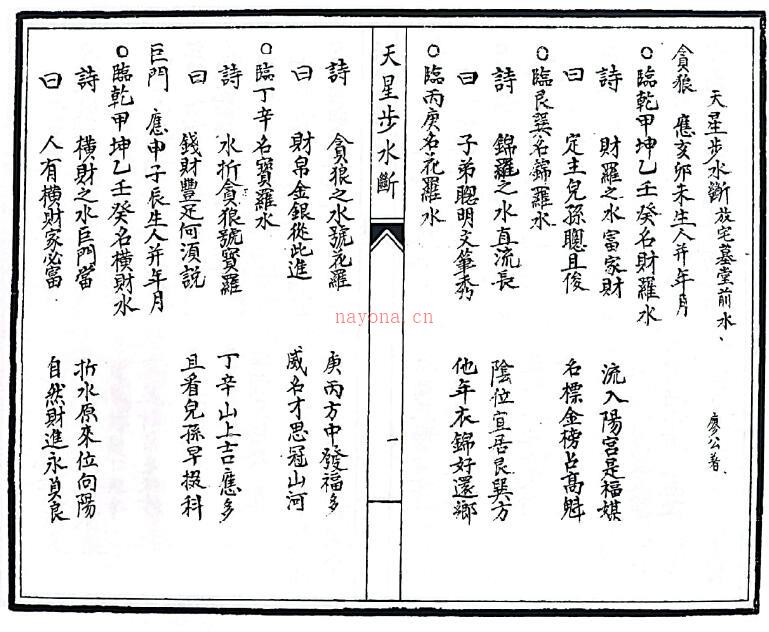 天星步水斷放宅墓堂前水、 廖公著
貪狼 應亥卯未生人并年月
○臨乾甲坤乙壬癸名財羅水
詩 財羅之水富家財 流入陽宮是福媒
曰 定主兒孫聰且俊 名標金榜占高魁
○臨艮巽名錦羅水
詩 錦羅之水直流長 陰位宜居艮巽方
曰 子弟聰明文筆秀 他年衣錦好還鄉
○臨丙庚名花羅水
天星步水斷 一
詩 貪狼之水號花羅 庚丙方中發福多
曰 財帛金銀從此進 威名才思冠山河
○臨丁辛名寶羅水
詩 水折貪狼號寶羅 丁辛山上吉應多
曰 錢財豐足何須説 且看兒孫早掇科
巨門 應申子辰生人并年月
○臨乾甲坤乙壬癸名橫財水
詩 橫財之水巨門當 折水原來位向陽
曰 人有橫財家必富 自然財進永貞良
nayona.cn